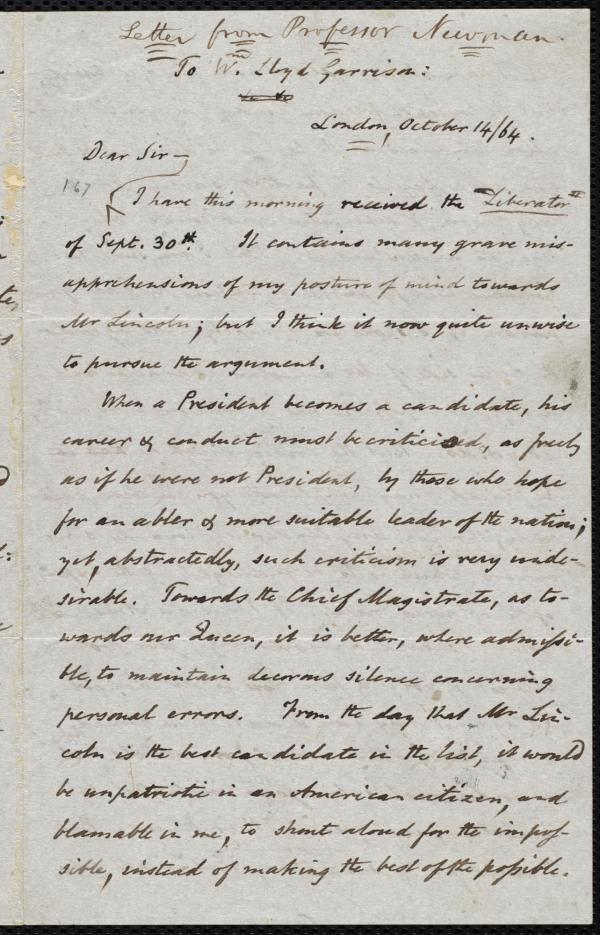 Letter from Professor Newman.
To Wm. Lloyd Garrison:
London, October 14/64.
Dear Sir—
167
I have this morning received the "Liberator"
of Sept. 30th. It contains many grave mis-
apprehensions of my posture of mind towards
Mr Lincoln; but I think it now quite unwise
to pursue the argument.
When a President becomes a candidate, his
career & conduct must be criticised, as freely
as if he were not President, by those who hope
for an abler & more suitable leader of the nation;
yet, abstractedly, such criticism is very unde-
sirable. Towards the Chief Magistrate, as to-
wards our Queen, it is better, where admissi-
ble, to maintain decorous silence concerning
personal errors. From the day that Mr Lin-
coln is the best candidate in the list, it would
be unpatriotic in an American citizen, and
blamable in me, to shout aloud for the impos-
sible, instead of making the best of the possible.